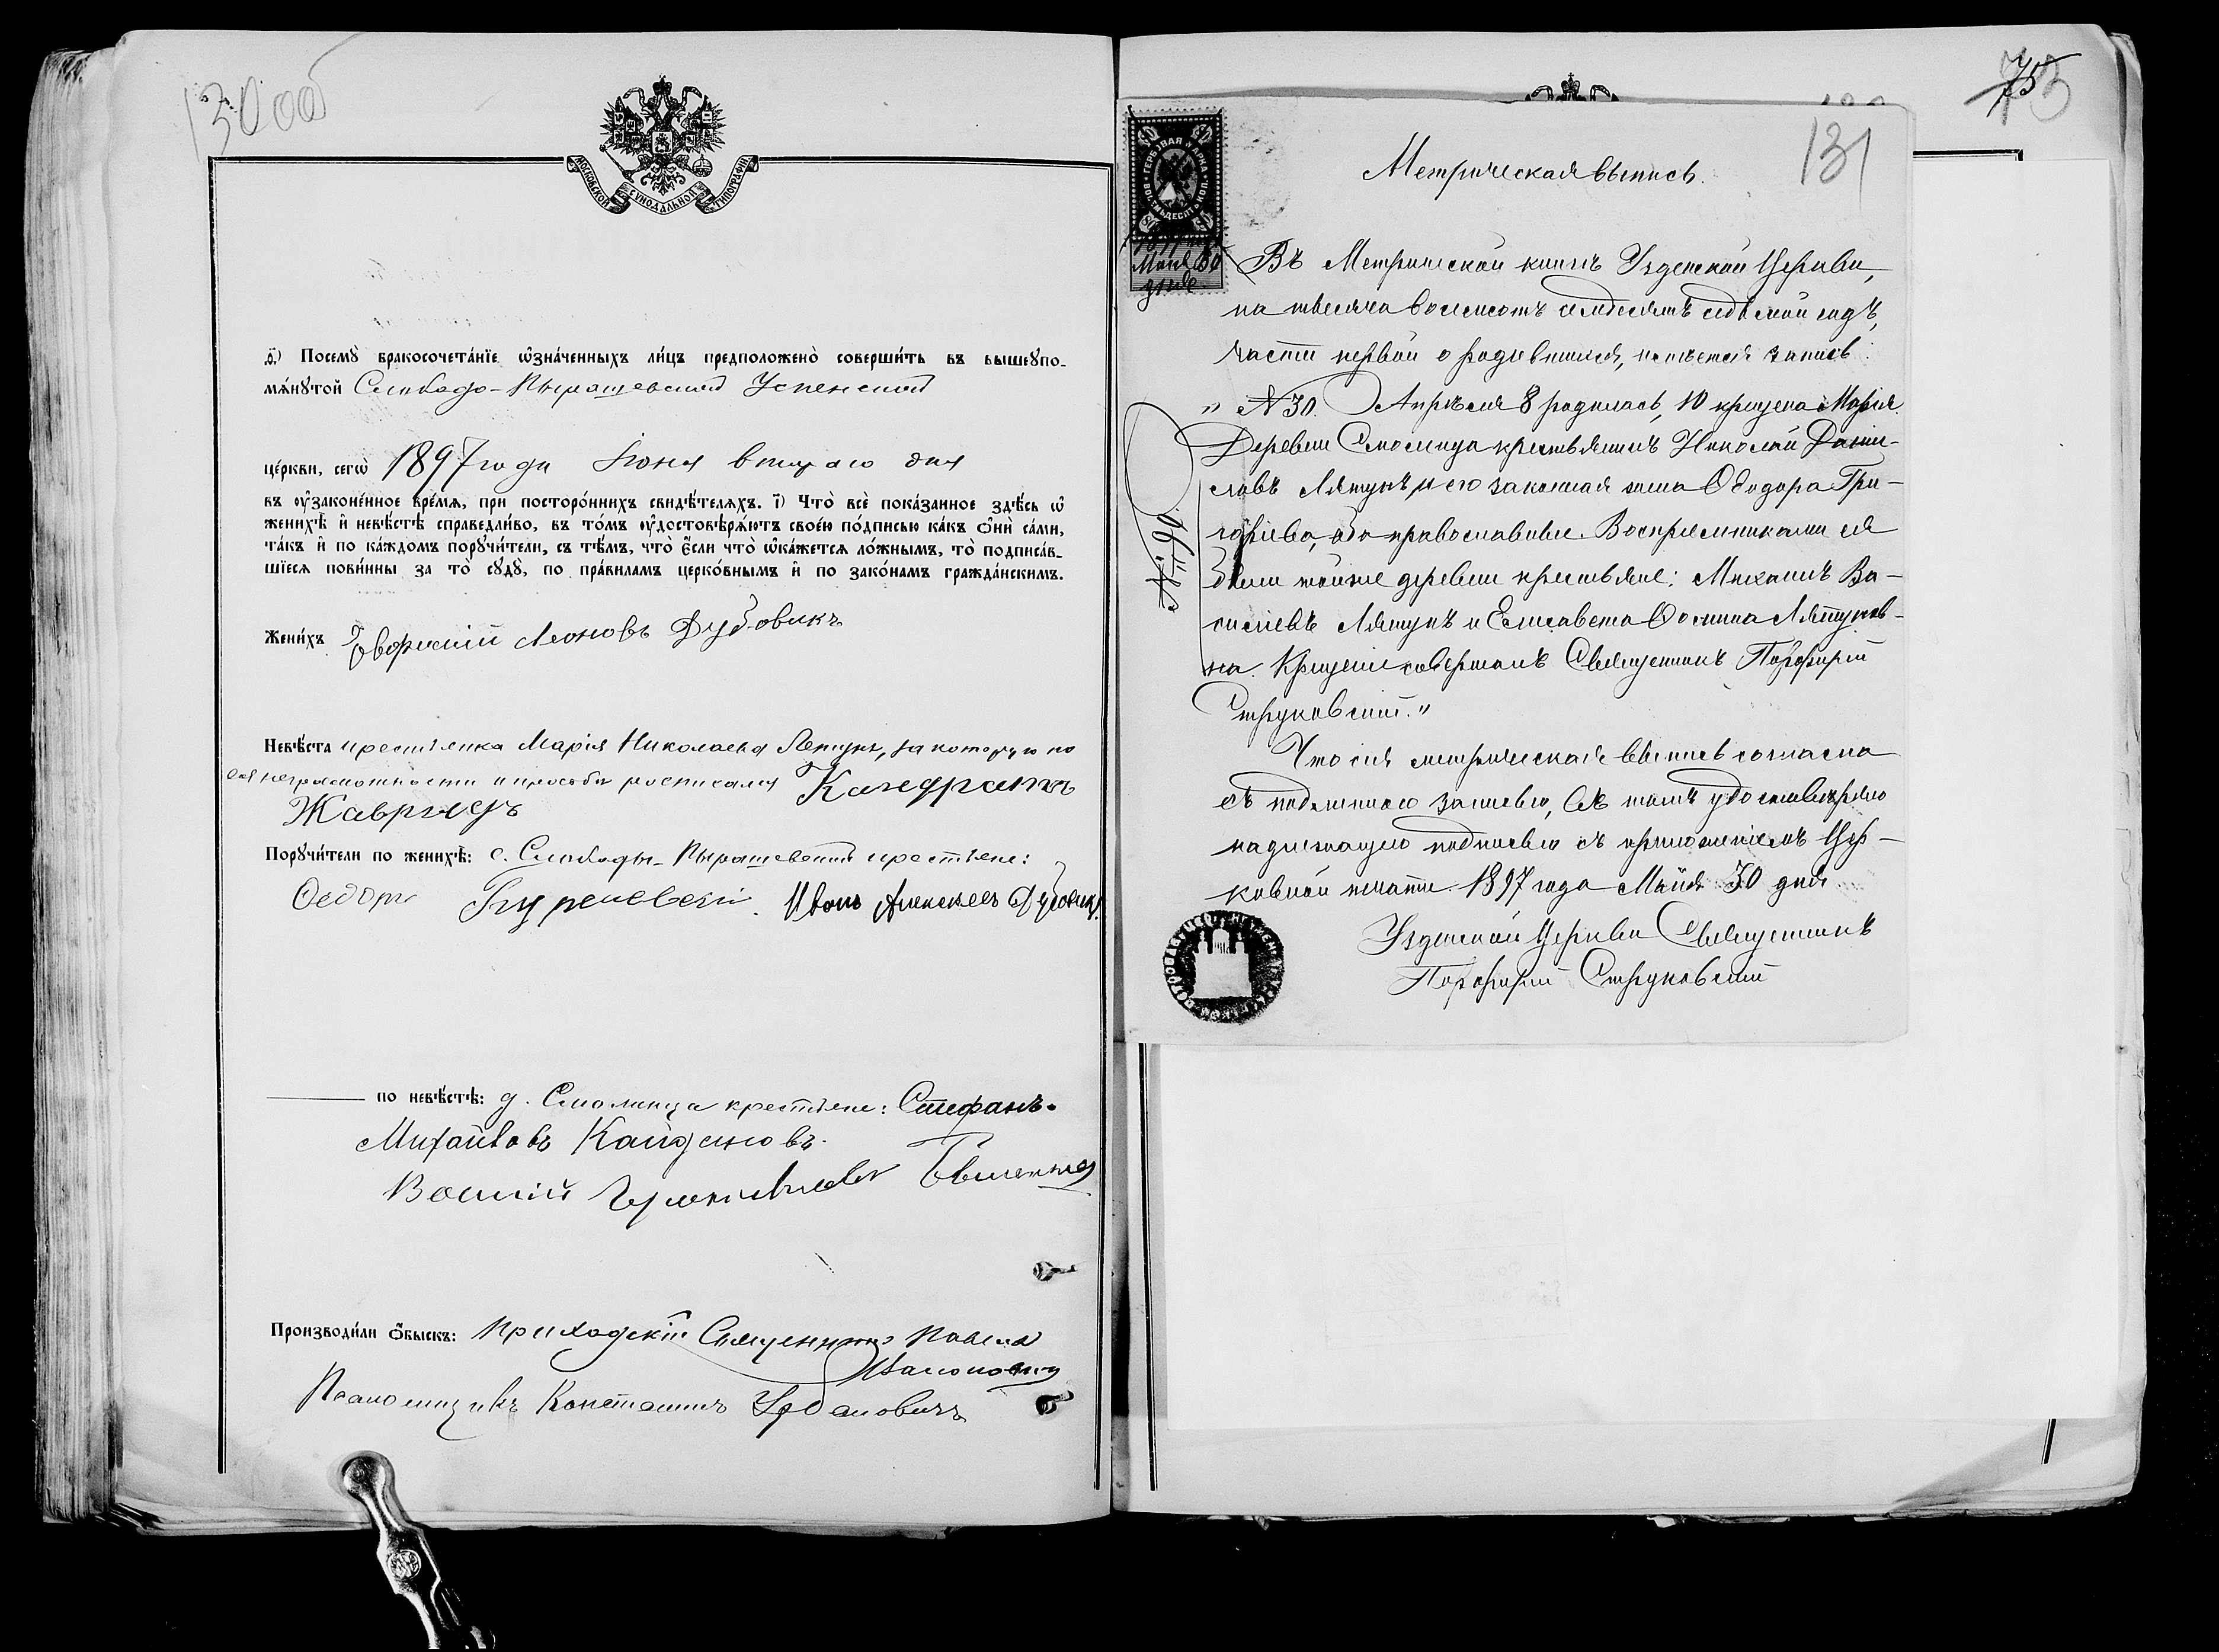 130 об
МОСКОВСКОЙ СУНОДАЛЬНОЙ ТИПОГРАФІИ
Посемꙋ̀ бракосочета́нїе ѡ҆зна́ченныхъ ли́цъ предположено̀ соверши́ть въ вышеꙋпо-
мѧ́нꙋтой Слободо-Пырашевской Успенской
це́ркви, сегѡ̀ 1897 года Іюня втораго дня
въ ᲂу҆законе́нное вре́мѧ, при посторо́ннихъ свидѣ́телѧхъ. і҃) Что̀ всѐ пока́занное здѣ́сь ѡ҆
женихѣ̀ и҆ невѣ́стѣ справедли́во, въ то́мъ ᲂу҆достовѣрѧ́ютъ свое́ю по́дписью ка́къ ѻ҆нѝ са́ми,
та́къ и҆ по ка́ждомъ порꙋчи́тели, съ тѣ́мъ, что̀ є҆́сли что̀ ѡ҆ка́жетсѧ ло́жнымъ, то̀ подписа́в-
шїесѧ пови́нны за то̀ сꙋдꙋ̀, по пра́виламъ церко́внымъ и҆ по зако́намъ гражда́нскимъ.
Жени́хъ Леоновъ Дубовикъ
Невѣ́ста крестьянка Марія Николаева Летунъ, за которую по
ея неграмотности и просьбѣ росписался
Порꙋчи́тели по женихѣ̀: с. Слободы-Пырашевской крестьяне:
Ѳедоръ Иванъ Алексѣевъ Дубовикъ
по невѣ́стѣ: д. Смолинца крестьяне: Стефанъ
Михайловъ Кайденовъ
Производи́ли ѻ҆́быскъ: Приходскій Священникъ Павелъ
Псаломщикъ Константинъ Урбановичъ
75
131
ГЕРБОВАЯ МАРКА ВОСЕМЬДЕСЯТЪ КОП.
1897 года
Маія 30
дня
Метрическая выпись.
Въ Метрической книгѣ Узденской Церкви,
на тысяча восемсотъ семдесятъ седьмой годъ,
части первой о родившихся, имѣется запись:
„ №30. Апрѣля 8 родилась, 10 крещена Марія.
Деревни Смолинца крестьянинъ Николай Дани-
ловъ Лятунъ и его законная жена Ѳеодора Гри-
горіева, оба православные. Воспріемниками ея
были тойже деревни крестьяне: Михаилъ Ва-
силіевъ Лятунъ и Елисавета Ѳомина Лятунов-
на. Крещеніе совершалъ Священникъ Порфирій
Струковскій."
Что сія метрическая выпись согласна
съ подлинною записью, въ томъ удостовѣряю
надлежащею подписью съ приложеніемъ Цер-
ковной печати. 1897 года Маія 30 дня
Узденской Церкви Священникъ
Порфирій Струковскій